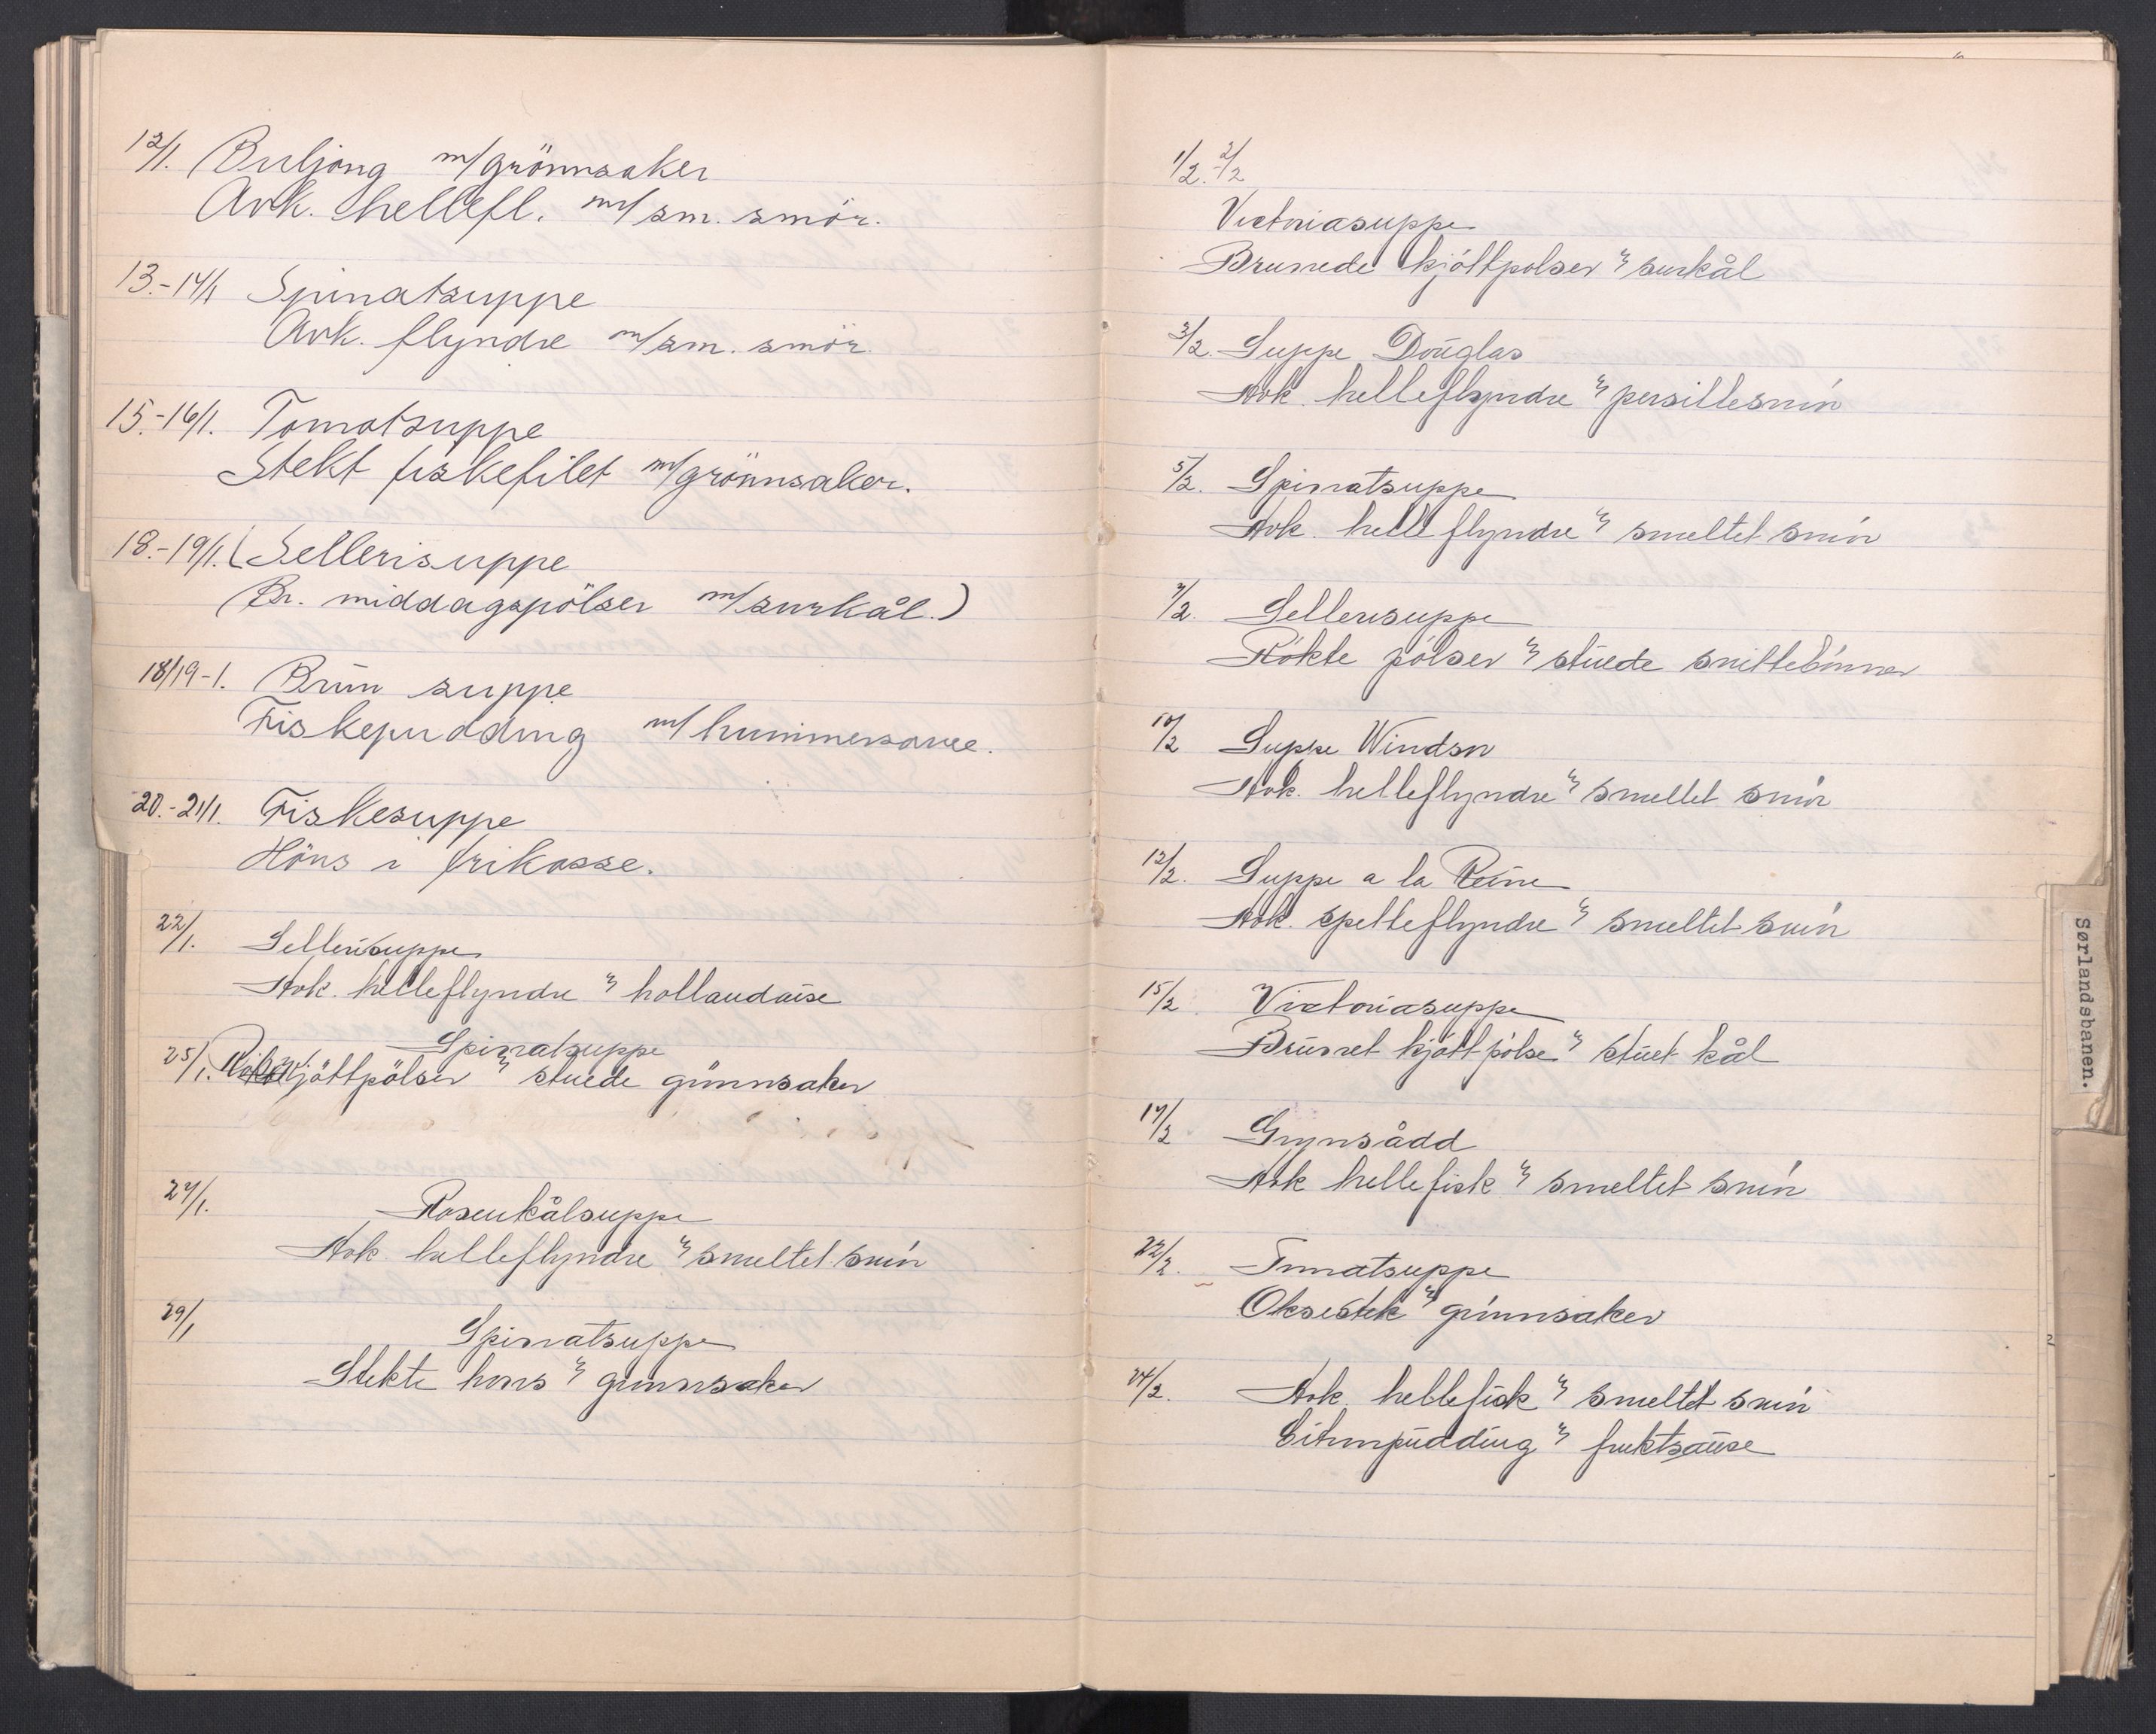 12/1. Buljong m/grönnsaker
Avk. hellefl. m/sm. smör.
13.-14/1 Spinatsuppe
Avk. flyndre m/sm. smör.
15.-16/1. Tomatsuppe
Stekt fiskefilet m/grönnsaker.
18.-19/1. (Sellerisuppe
(Br. middagspölser m/surkål.)
18/19-1. Brun suppe
Fiskepudding m/hummersaus.
20.-21/1. Fiskesuppe
Höns i frikasse.
22/1. Sellerisuppe
Avk. helleflyndre m/ hollandaise
Spinatsuppe
25/1. kjöttpölser m/ stuede grönnsaker
27/1. Rosenkålsuppe
Avk. helleflyndre m/ smeltet smör
29/1 Spinatsuppe
Stekte höns m/ grönnsaker
1/2.-2/2
Victoriasuppe
Brunede kjöttpölser m/ surkål
3/2. Suppe Douglas
Avk. helleflyndre m/ persillesmör
5/2. Spinatsuppe
Avk. helleflyndre m/ smeltet smör
7/2. Sellerisuppe
Rökte pölser m/ stuede snittebönner
10/2 Suppe Windsor
Avk. helleflyndre m/ smeltet smör
12/2. Suppe a la Reine
Avk. spetteflyndre m/ smeltet smör
15/2 Victoriasuppe
Brunet kjöttpölse m/ stuet kål
17/2 Grynsådd
Avk hellefisk m/ smeltet smör
22/2. Tomatsuppe
Oksestek m/ grönnsaker
24/2. Avk. hellefisk m/ smeltet smör
Citronpudding m/ fruktsause
Sørlandsbanen.